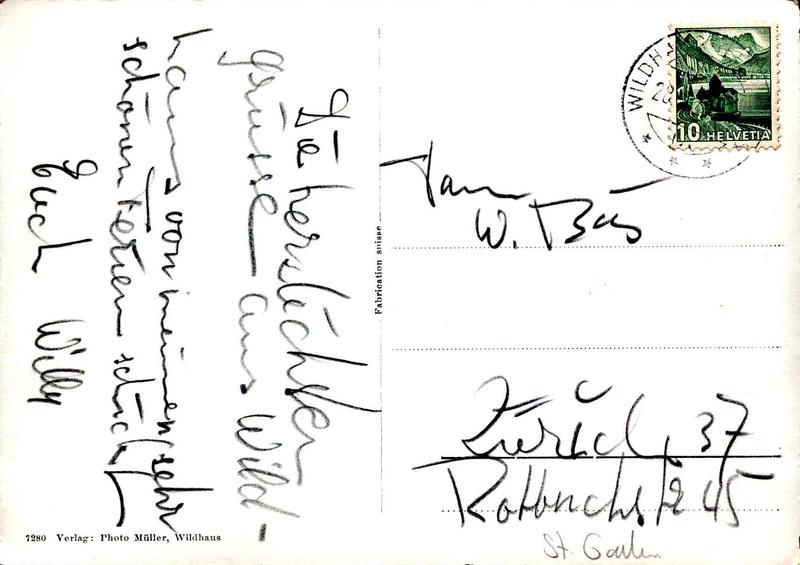 Die herzlichsten
grüsse aus Wild-
haus von meinen sehr
schönen Ferien schickt
Euch Willy
W.
Zürich 37
Rotbuchstr 45
St. Gallen
WILDHAUS
28
10 HELVETIA
Fabrication suisse
7280 Verlag: Photo Müller, Wildhaus